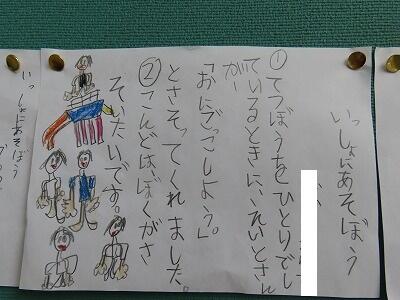 いっしょにあそぼう
①てつぼうをひとりでし
ているときに、いれいとさん
が
「おにごっこしよう。」
とさそってくれました。
②こんどは、ぼくがさ
そいたいです。
いっしょにあそぼう